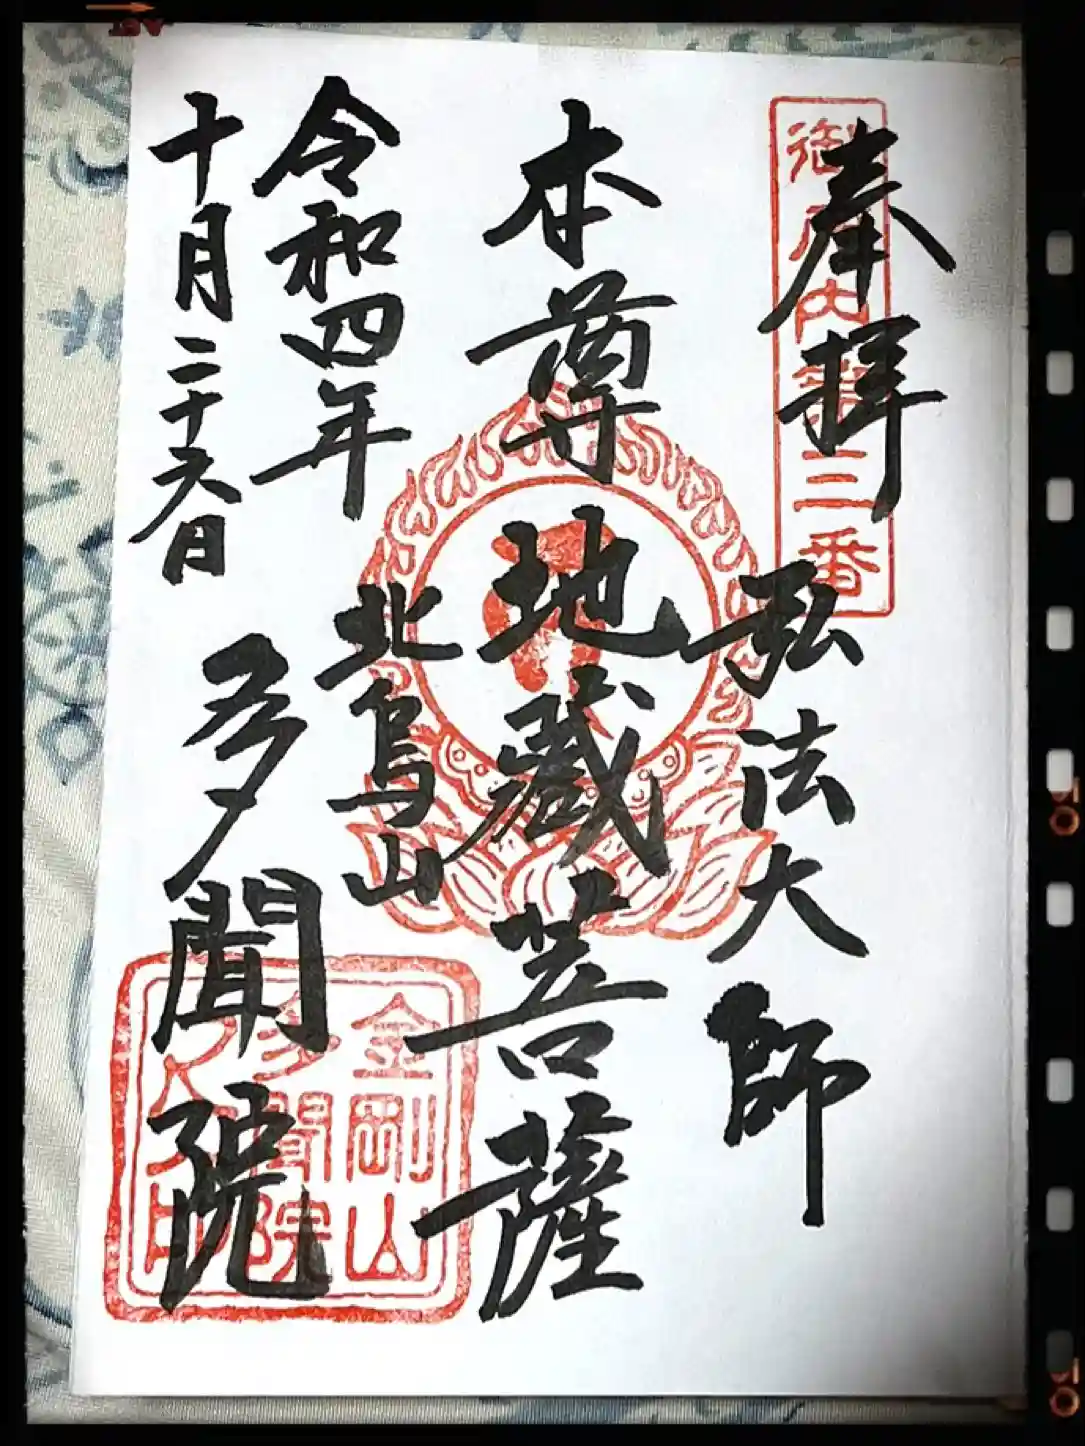 奉拝
弘法大師
本尊地蔵菩薩
令和四年
十月二十六日
北烏山
多聞院
御府内第三番
金剛山
多聞院